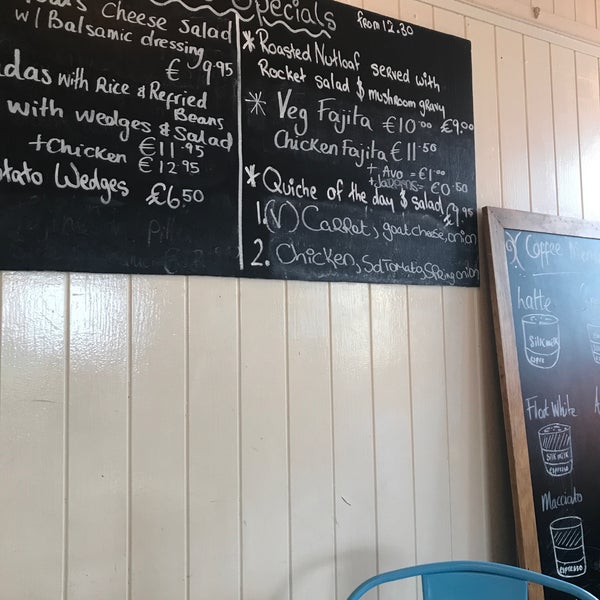 Cheese Salad
w/ Balsamic dressing
€ 9.95
das with Rice & Refried
Beans
with wedges & Salad
€11.95
+Chicken €12.95
Potato Wedges
£6.50
Specials
from 12.30
* Roasted Nutloaf served with
Rocket salad & mushroom gravy
£9.00
* Veg Fajita €10.00
Chicken Fajita €11.50
+ Avo = €1.00
+ = €0.50
* Quiche of the day & salad
£9.95
1. (V) Carrot, goat cheese, onion
2. Chicken, SdTomato, Spring onion
Coffee Menu
Latte
Silk milk
Flat White
Silk milk
espresso
Macciato
espresso